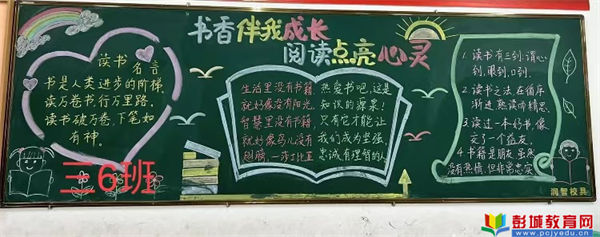 书香伴我成长
阅读点亮心灵
读书名言
书是人类进步的阶梯
读万卷书,行万里路,
读书破万卷,下笔如
有神。
三6班
生活里没有书籍,
就好像没有阳光,
智慧里没有书籍,
就好像鸟儿没有
翅膀,—莎士比亚
热爱书吧,这是
知识的源泉!
只有它才能让
我们成为坚强、
忠诚有理智的人
1.读书有三到:谓心
到,眼到,口到。
2.读书之法,在循序
渐进,熟读而精思。
3.读过一本好书,像
交了一个益友。
4.书籍是朋友,虽然
没有热情,但非常忠实
润智校具
彭城教育网
www.pcjyedu.cn